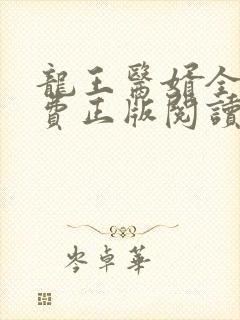 龍王醫婿全
費正版閱讀
岑卓華